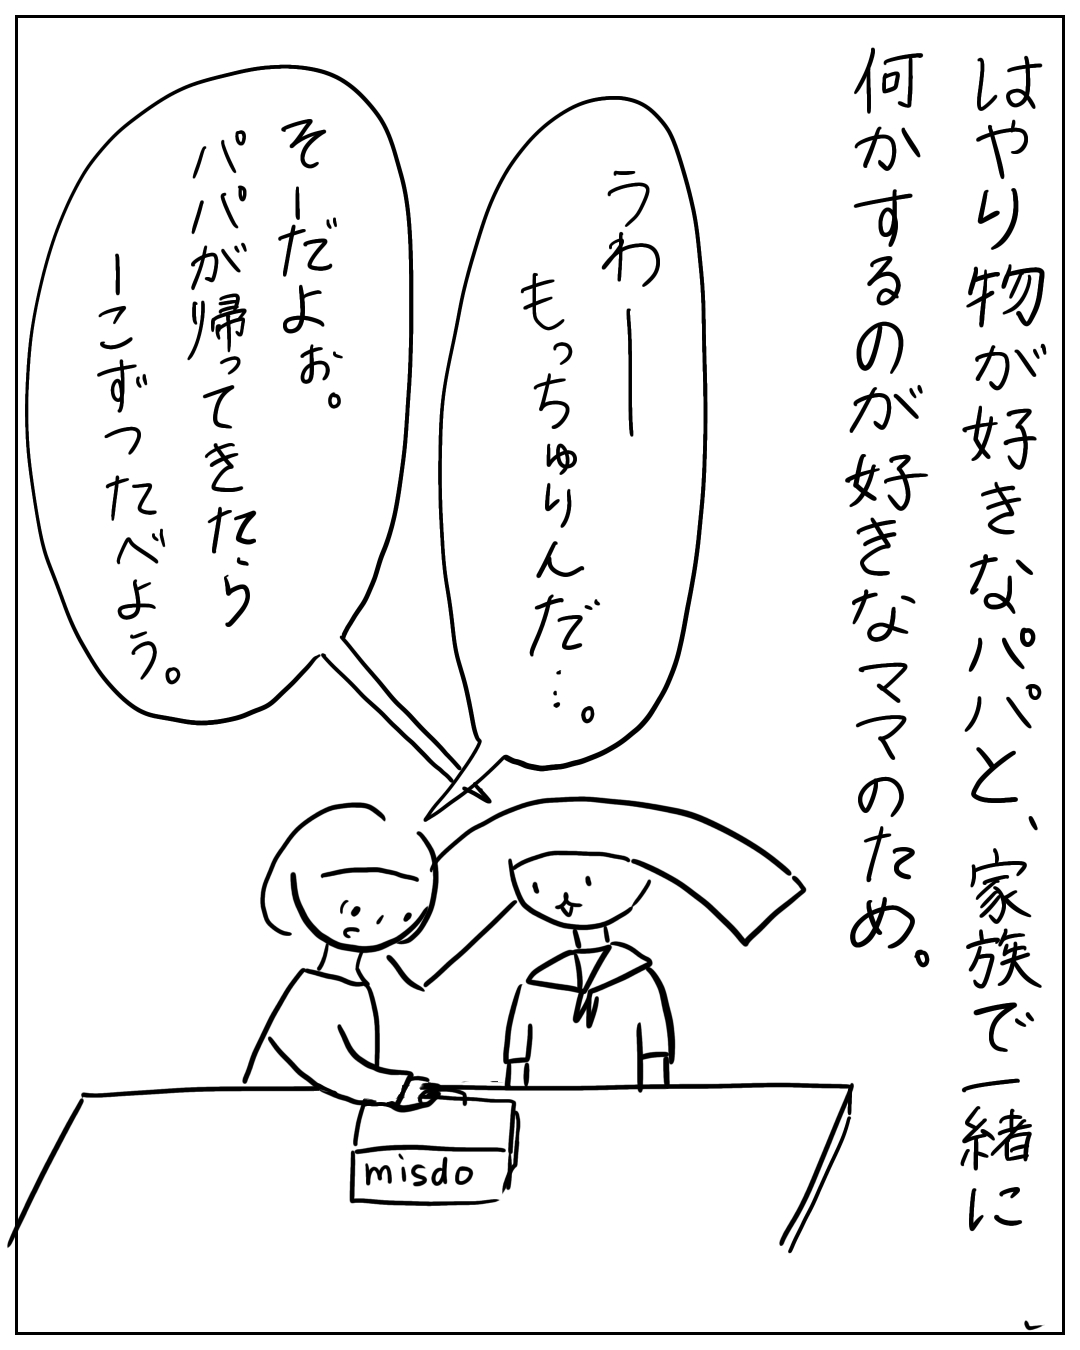 はやり物が好きなパパと、家族で一緒に
何かするのが好きなママのため。
うわー
もっちゅりんだ…。
そーだよぉ。
パパが帰ってきたら
ーこずつたべよう。
misdo